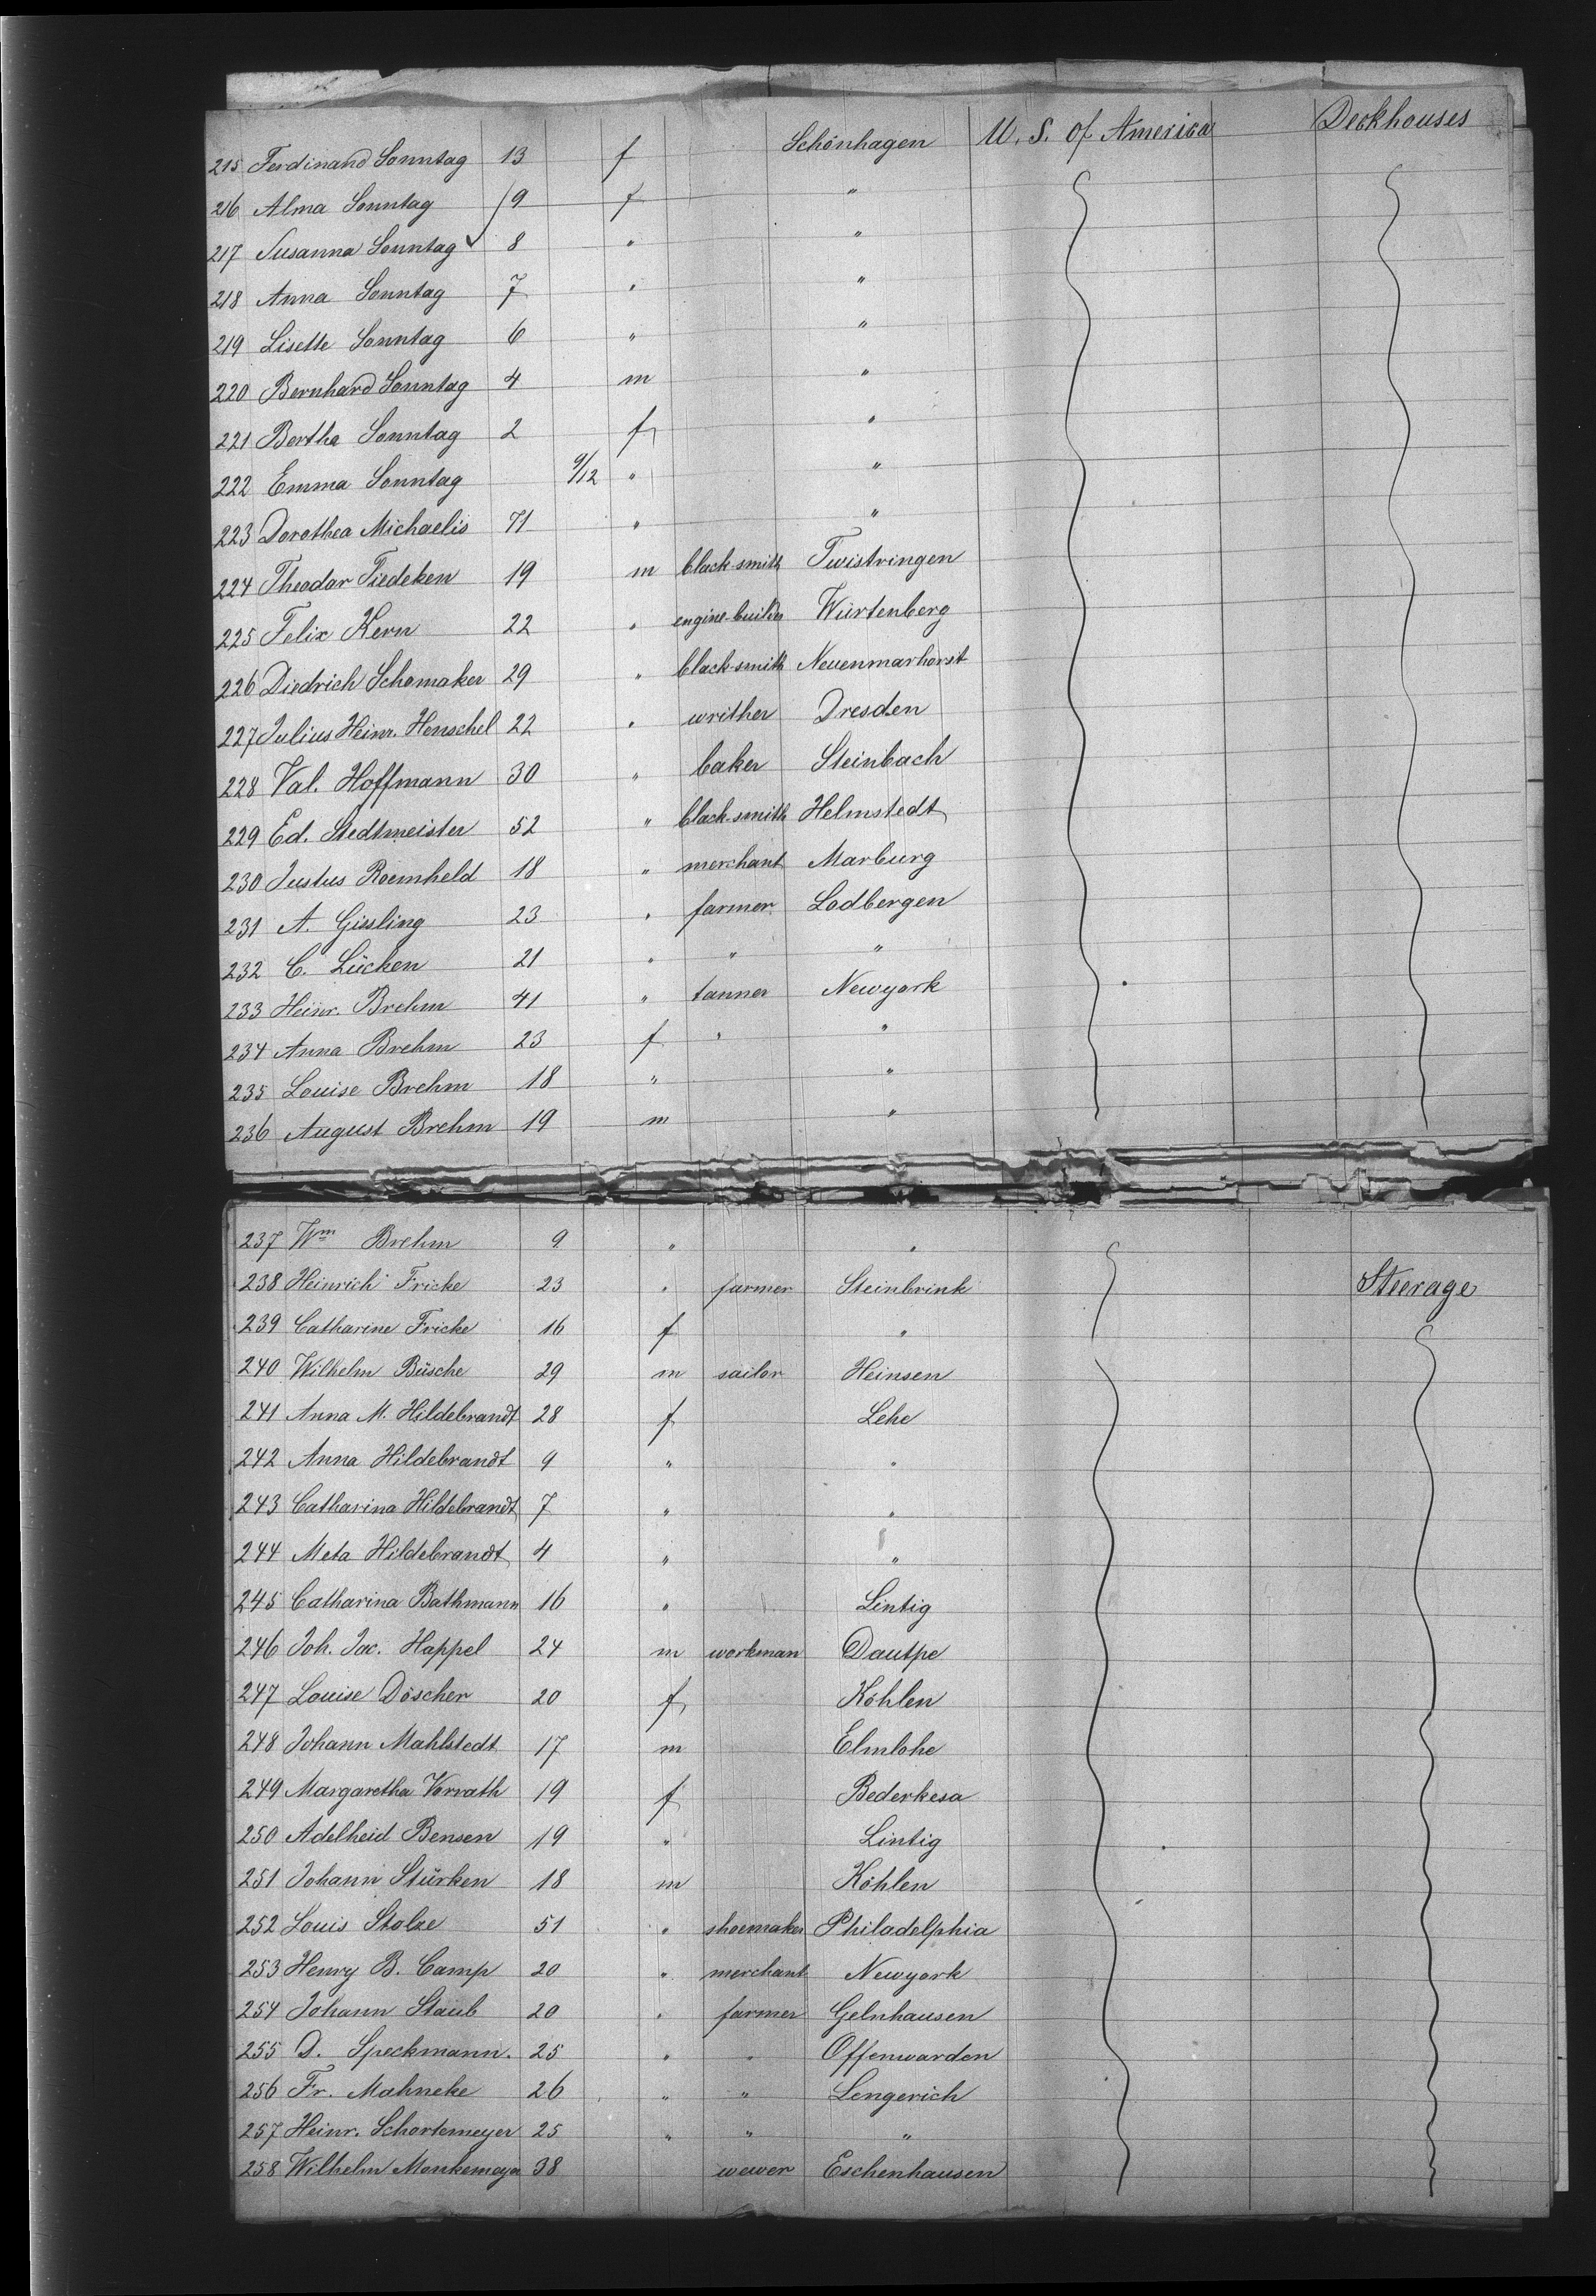 215 Ferdinand Sonntag 13 f Schönhagen U. S. of America Deckhouses
216 Alma Sonntag 9 f "
217 Susanna Sonntag 8 " "
218 Anna Sonntag 7 " "
219 Lisette Sonntag 6 " "
220 Bernhard Sonntag 4 m "
221 Bertha Sonntag 2 f "
222 Emma Sonntag 9/12 " "
223 Dorothea Michaelis 71 " "
224 Theodor Tiedeken 19 m black-smith Twistringen
225 Felix Kern 22 " engine-builder Würtenberg
226 Diedrich Schomaker 29 " black-smith Neuenmarhorst
227 Julius Heinr. Henschel 22 " writher Dresden
228 Val. Hoffmann 30 " baker Steinbach
229 Ed. Stedtmeister 52 " black-smith Helmstedt
230 Justus Roemheld 18 " merchant Marburg
231 A. Giesling 23 " farmer Lodbergen
232 C. Lücken 21 " " "
233 Heinr. Brehm 41 " tanner Newyork
234 Anna Brehm 23 f " "
235 Louise Brehm 18 " "
236 August Brehm 19 m "
237 Wm Brehm 9 " "
238 Heinrich Fricke 23 " farmer Steinbrink Steerage
239 Catharine Fricke 16 f "
240 Wilhelm Büsche 29 m sailor Heinsen
241 Anna M. Hildebrandt 28 f Lehe
242 Anna Hildebrandt 9 " "
243 Catharina Hildebrandt 7 " "
244 Meta Hildebrandt 4 " "
245 Catharina Bathmann 16 " Lintig
246 Joh. Jac. Happel 24 m workman Dautpe
247 Louise Döscher 20 f Köhlen
248 Johann Mahlstedt 17 m Elmlohe
249 Margaretha Vorrath 19 f Bederkesa
250 Adelheid Bensen 19 " Lintig
251 Johann Stürken 18 m Köhlen
252 Louis Stolze 51 " shoemaker Philadelphia
253 Henry B. Camp 20 " merchant Newyork
254 Johann Staub 20 " farmer Gelnhausen
255 D. Speckmann. 25 " " Offenwarden
256 Fr. Mahneke 26 " " Lengerich
257 Heinr. Schortemeyer 25 " " "
258 Wilhelm Monkemeyer 38 wewer Eschenhausen